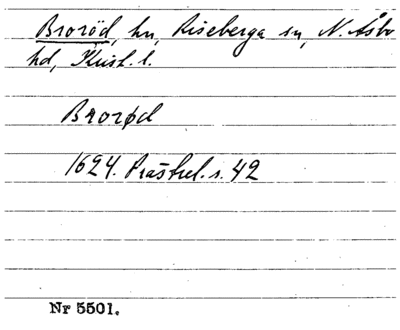 Broröd, hn, Riseberga sn, N. Åsbo
hd, Krist. l.
Brorød
1624. Prästrel. s. 42
Nr 5501.